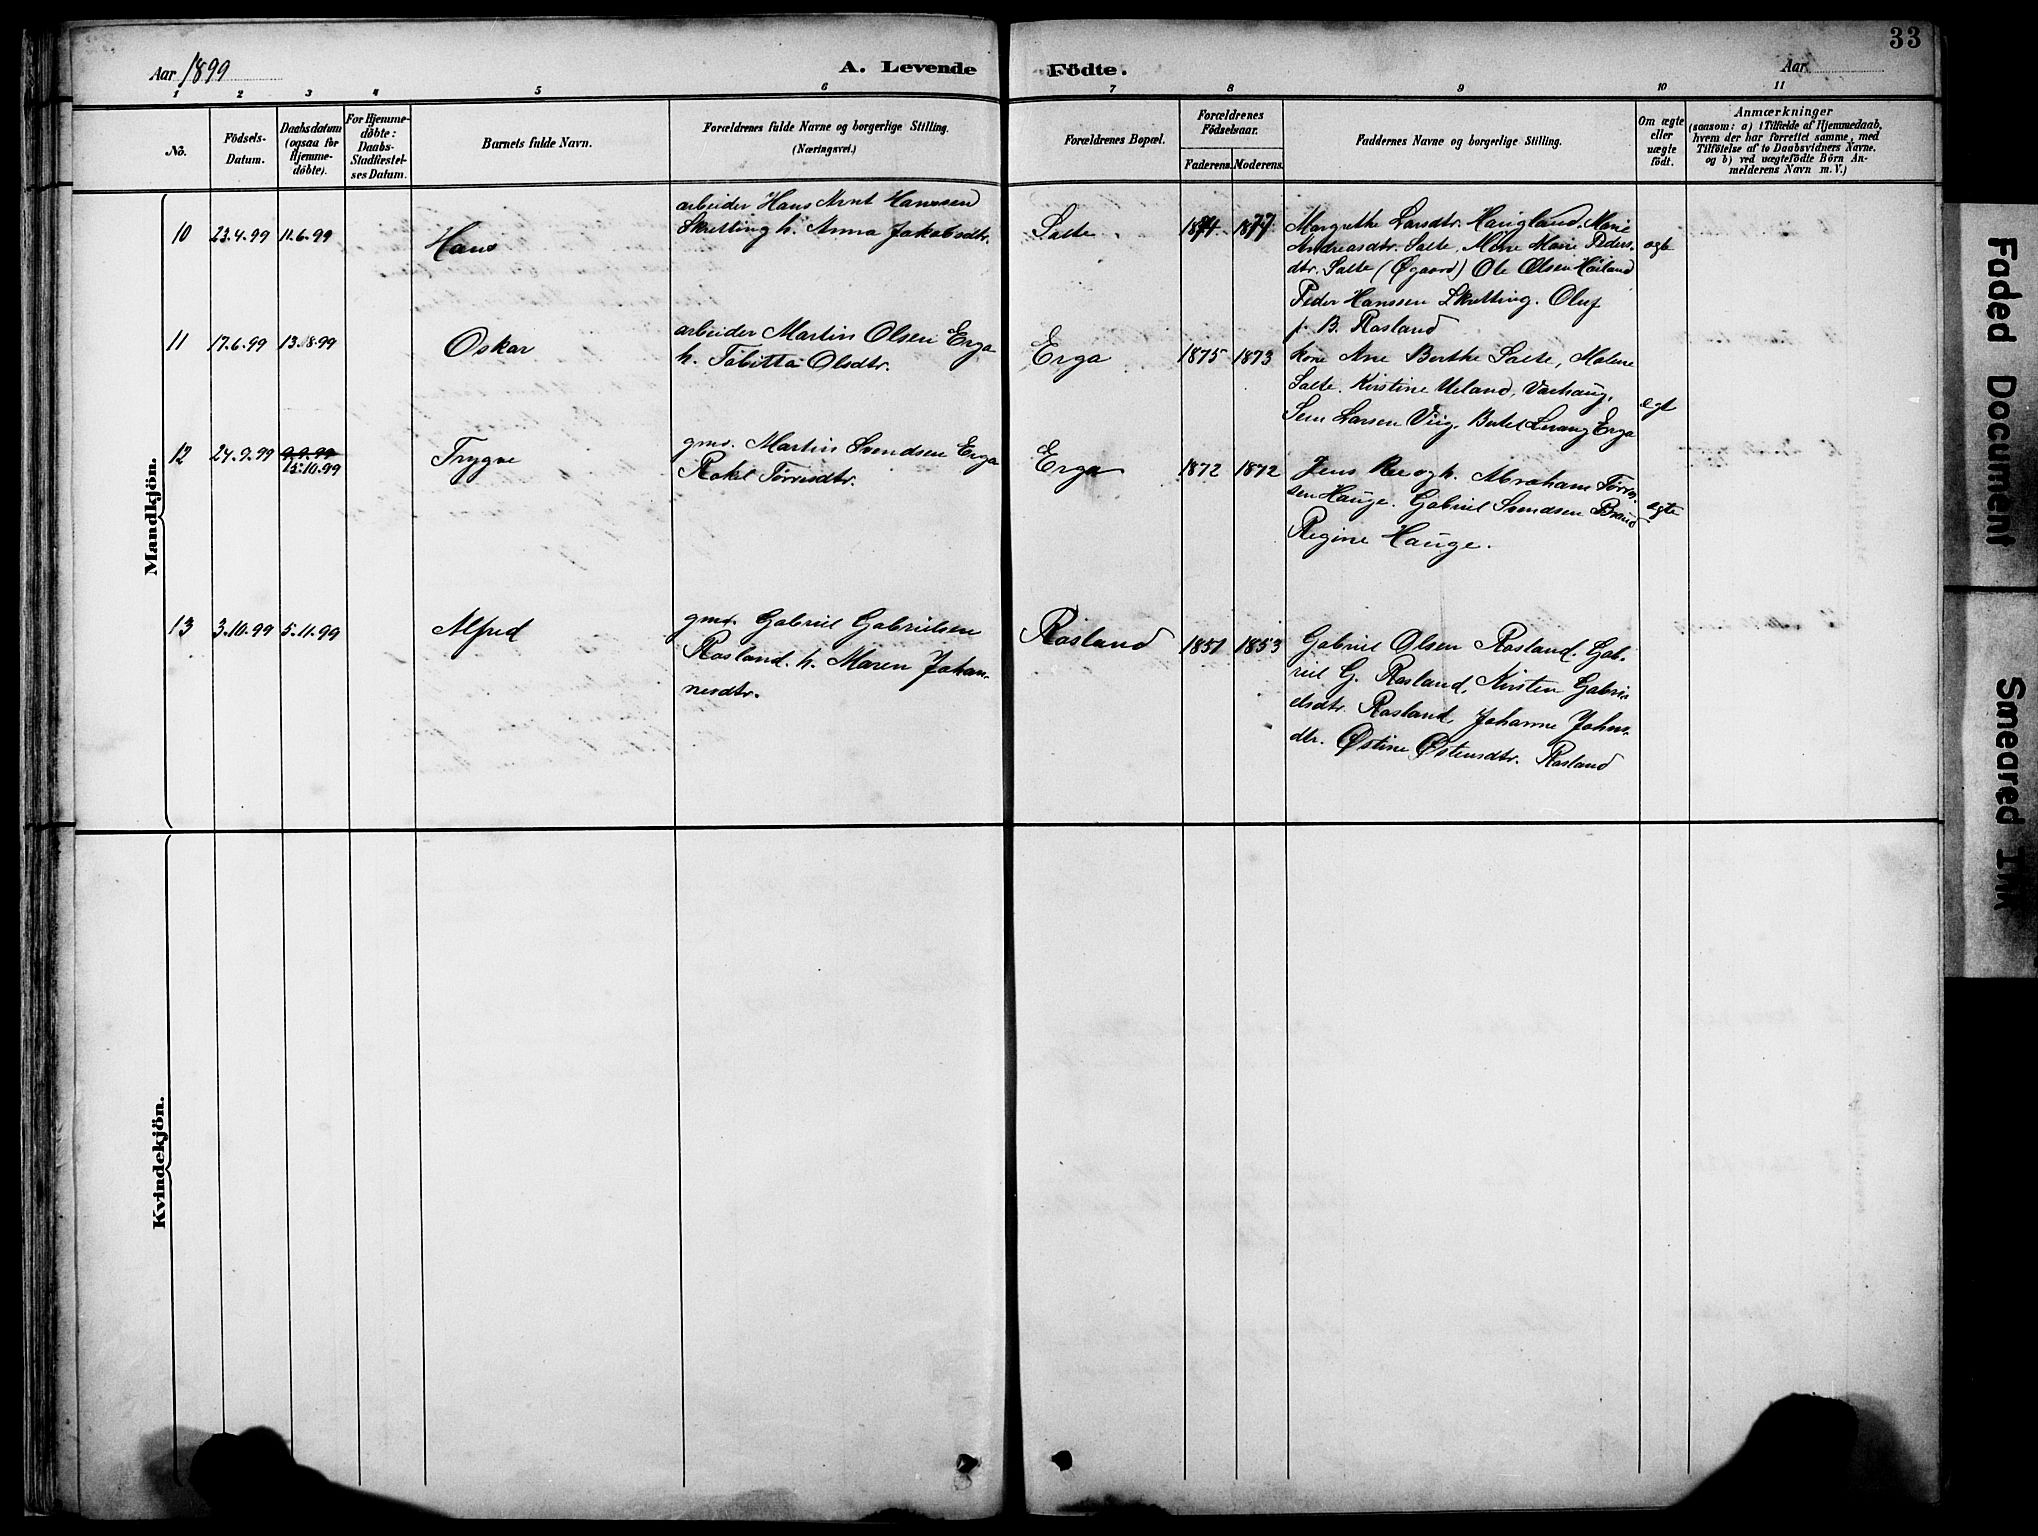 33
Aar 1899
A. Levende Födte.
Aar
1 2 3 4 5 6 7 8 9 10 11
No.
Födsels-
Datum.
Daabsdatum
(ogsaa for
Hjemme-
døbte).
For Hjemme-
døbte:
Daabs-
Stadfæstel-
ses Datum.
Barnets fulde Navn.
Forældrenes fulde Navne og borgerlige Stilling.
(Næringsvei.)
Forældrenes Bopæl.
Forældrenes
Födselsaar.
Faderens. Moderens.
Faddernes Navne og borgerlige Stilling.
Om ægte
eller
uægte
født.
Anmærkninger
(saasom: a) i Tilfælde af Hjemmedaab,
hvem der har forrettet samme, med
Tilföielse af to Daabsvidners Navne.
og b) ved uægtefødte Börn An-
melderens Navn m. V.)
Mandkjön.
10 23.4.99 11.6.99 Hans
arbeider Hans Arnt Hanssen
Skretting h. Anna Jakobsdtr.
Salte 1874 1877
Margrethe Larsdtr. Haugland. Marie
Andreasdtr. Salte,
dtr. Salte (Øgaard) Ole Olsen Høiland
Peder Hanssen Skretting. Oluf
f. B. Rosland
ægte
11 17.6.99 13.8.99 Oskar
arbeider Martin Olsen Erga
h. Tabitta Olsdtr.
Erga 1875 1873
kone Ane Berthe Salte, Malene
Salte. Kirstine Ueland, Varhaug,
Sem Larsen Viig, Erga
egt
12 24.9.99 9.9.99
15.10.99
Trygve
gmd. Martin Svendsen Erga
Rakel Tørresdtr.
Erga 1872 1872
Jens Ree og h. Abraham Tørres-
sen Hauge. Gabriel Svendsen
Regine Hauge.
ægte
13 3.10.99 5.11.99 Alfred
gmd. Gabriel Gabrielsen
Rosland. h. Maren Johan-
nesdtr.
Rosland 1851 1853
Gabriel Olsen Rosland. Gab-
riel G. Rosland, Kirsten Gabri-
elsdtr. Rosland, Johanne Johns-
dtr. Østine Østensdtr. Rosland
Kvindekjön.
Faded Document
Smeared Ink